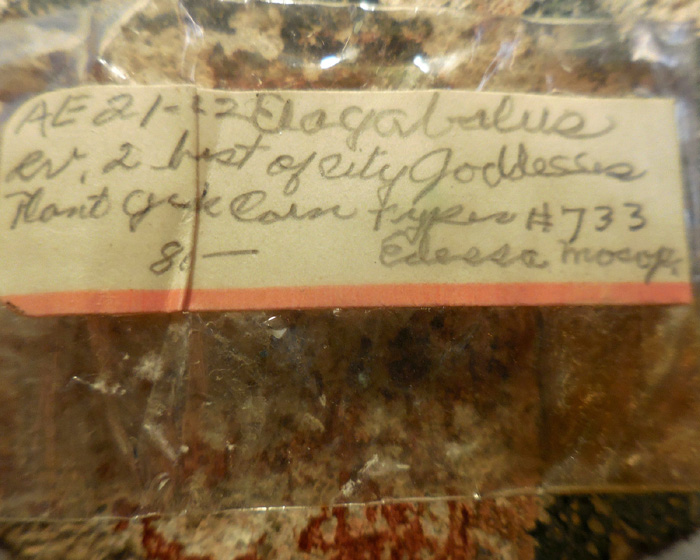 AE 21-22 Elagabalus
Rv. 2 bust of City Goddesses
Plant Greek Coin Types #733
8.— Edessa Mosop.